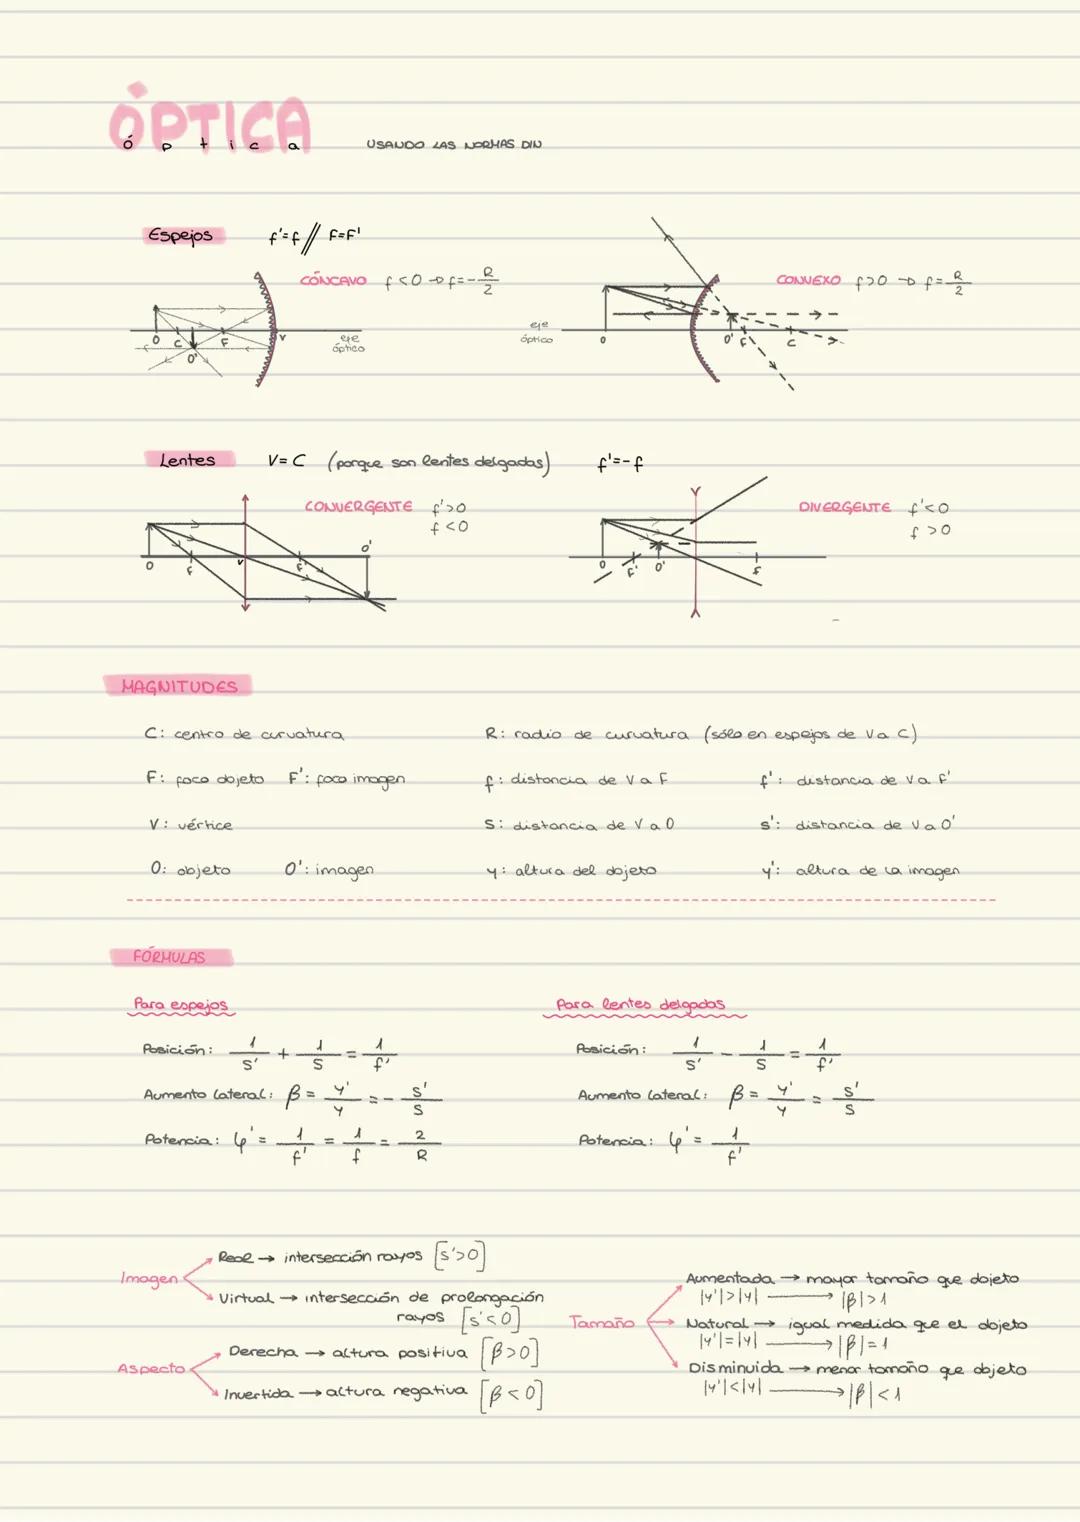 ÓPTICA
óptica
USANDO LAS NORMAS DIN
Espejos f'=f // F=F'
CÓNCAVO f<0 → f=-R/2
O C F V O'
eje óptico
CONVEXO f>0 → f=R/2
eje óptico
O O' F C
Lentes V=C (porque son lentes delgadas) f'=-f
CONVERGENTE f'>0
f<0
O F V F' O'
DIVERGENTE f'<0
f>0
O F' O' F
MAGNITUDES
C: centro de curvatura R: radio de curvatura (sólo en espejos de V a C)
F: foco objeto F': foco imagen f: distancia de V a F f': distancia de V a F'
V: vértice S: distancia de V a O s': distancia de V a O'
O: objeto O': imagen y: altura del objeto y': altura de la imagen
FÓRMULAS
Para espejos Para lentes delgadas
Posición: 1/s' + 1/s = 1/f' Posición: 1/s' - 1/s = 1/f'
Aumento lateral: β = y'/y = - s'/s Aumento lateral: β = y'/y = s'/s
Potencia: φ' = 1/f' = 1/f = 2/R Potencia: φ' = 1/f'
Imagen
Real → intersección rayos [s'>0]
Virtual → intersección de prolongación
rayos [s'<0]
Aspecto
Derecha → altura positiva [β>0]
Invertida → altura negativa [β<0]
Tamaño
Aumentada → mayor tamaño que objeto
|y'|>|y| → |β|>1
Natural → igual medida que el objeto
|y'|=|y| → |β|=1
Disminuida → menor tamaño que objeto
|y'|<|y| → |β|<1